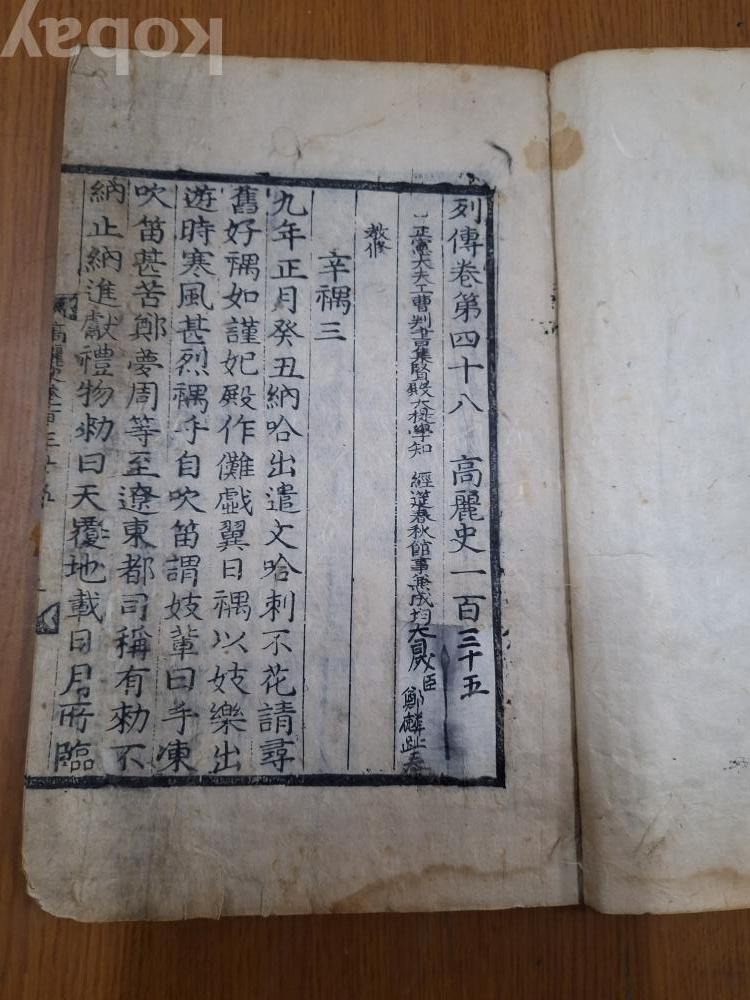 Kobay
列傳卷第四十八 高麗史一百三十五
正憲大夫工曹判書集賢殿大提學知 經筵春秋館事兼成均大司成臣鄭麟趾奉
敎修
辛禑三
九年正月癸丑納哈出遣文哈剌不花請尋
舊好禑如謹妃殿作儺戱翼日禑以妓樂出
遊時寒風甚烈禑手自吹笛謂妓輩曰手凍
吹笛甚苦鄭夢周等至遼東都司稱有勑不
納止納進獻禮物勑曰天覆地載日月所臨
高麗史卷一百三十五